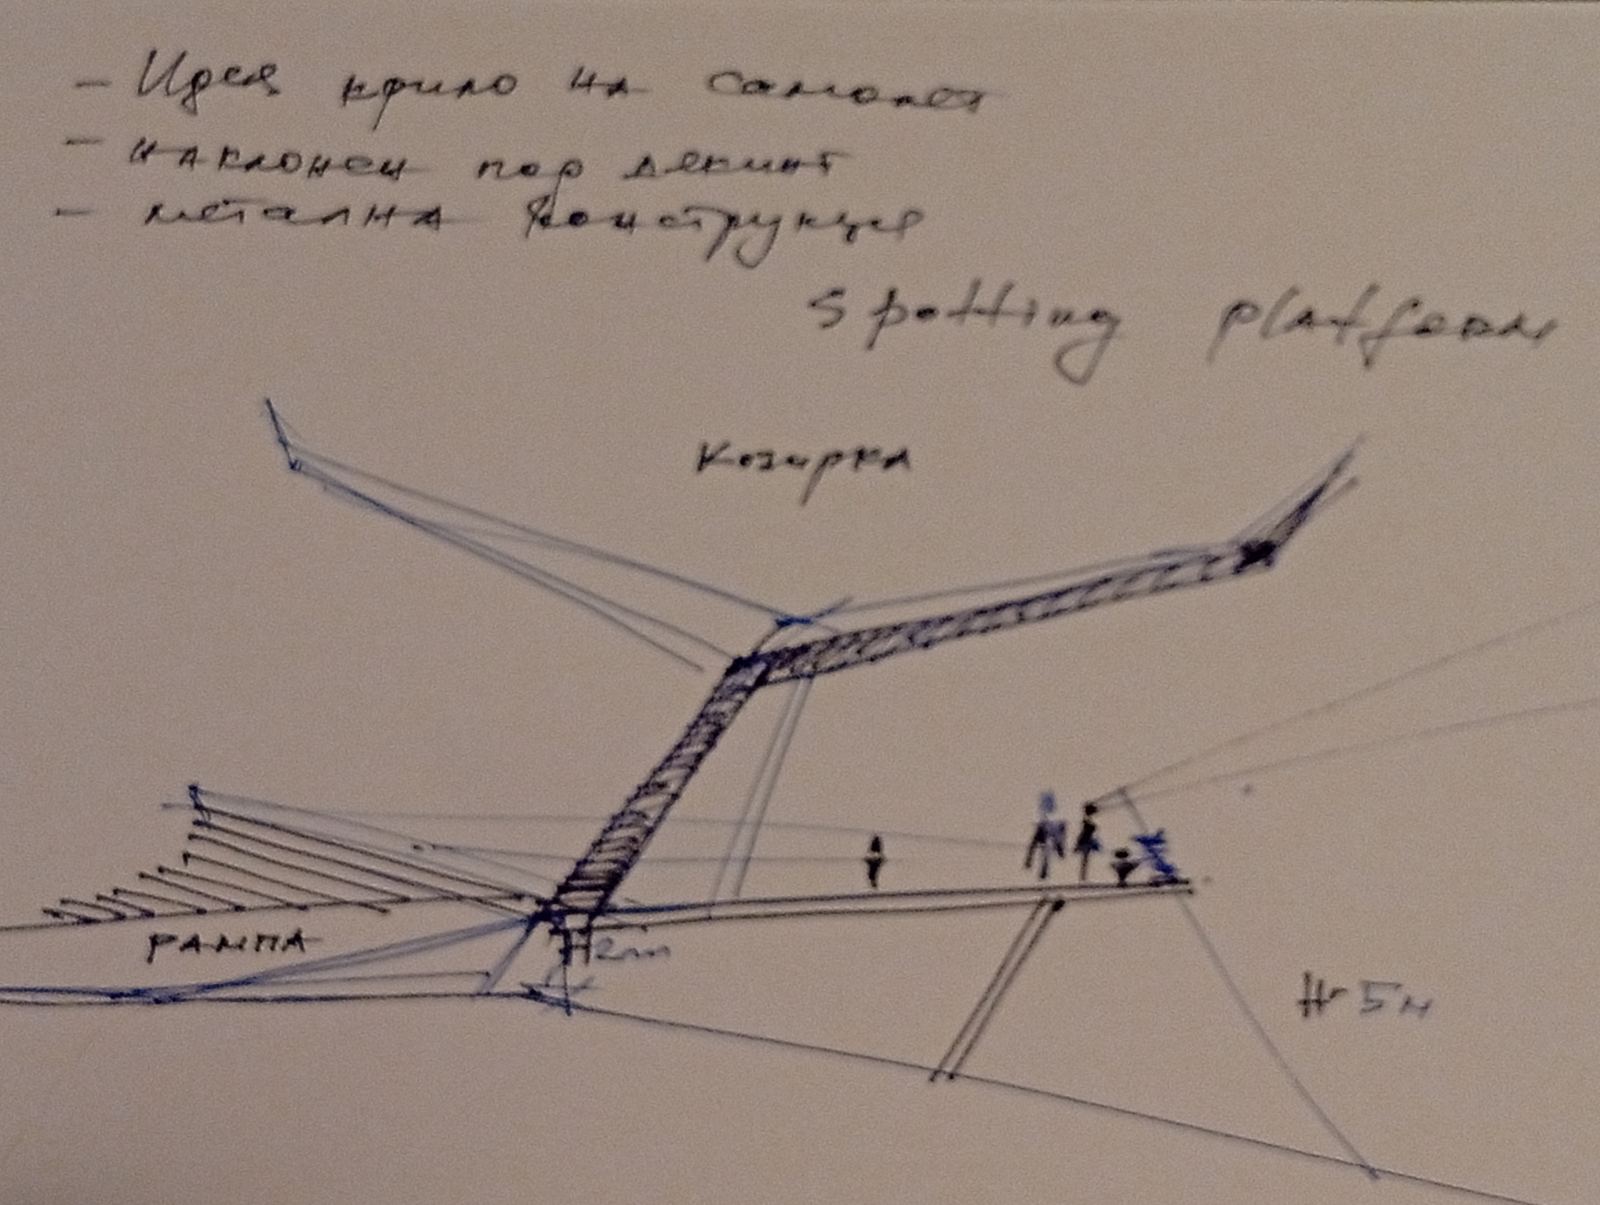 - Идея крило на самолет
- наклонен под
- метална конструкция
Spotting platform
Козирка
РАМПА
H 2m
H 5м